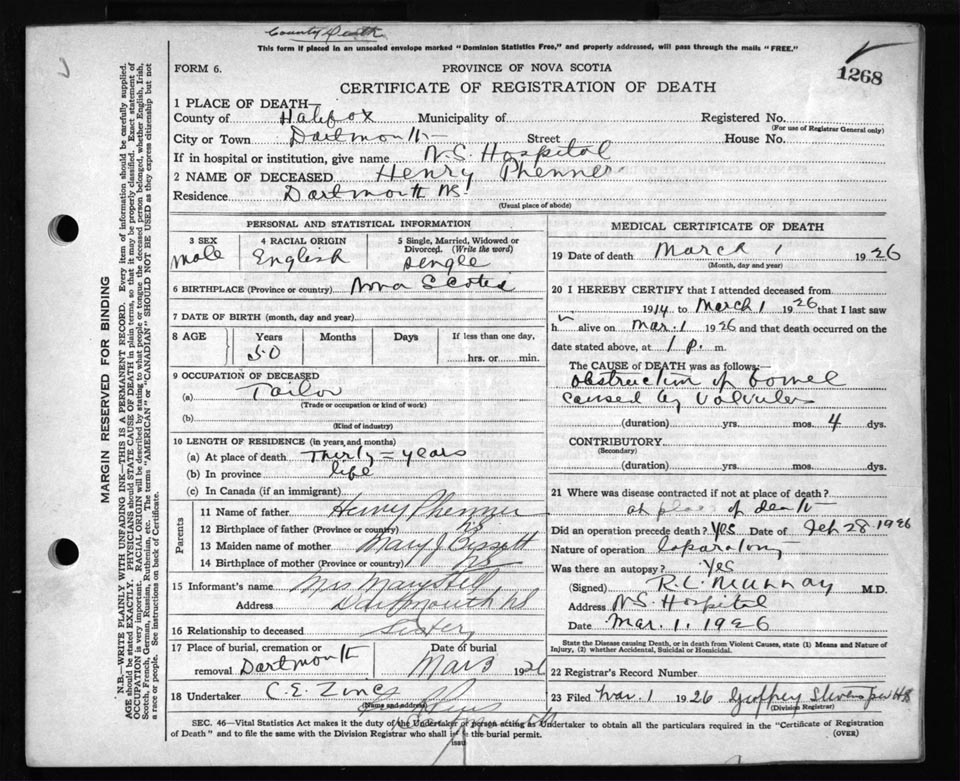 County Death
This form if placed in an unsealed envelope marked "Dominion Statistics Free," and properly addressed, will pass through the mails "FREE."
FORM 6.
PROVINCE OF NOVA SCOTIA
1268
CERTIFICATE OF REGISTRATION OF DEATH
1 PLACE OF DEATH—
County of Halifax Municipality of Registered No.
(For use of Registrar General only)
City or Town Dartmouth Street House No.
If in hospital or institution, give name N.S. Hospital
2 NAME OF DECEASED Henry Phenner
Residence Dartmouth NS.
(Usual place of abode)
PERSONAL AND STATISTICAL INFORMATION
3 SEX male
4 RACIAL ORIGIN English
5 Single, Married, Widowed or Divorced. (Write the word) Single
6 BIRTHPLACE (Province or country) Nova Scotia
7 DATE OF BIRTH (month, day and year)
8 AGE Years Months Days If less than one day,
50 hrs. or min.
9 OCCUPATION OF DECEASED
(a) Tailor
(Trade or occupation or kind of work)
(b)
(Kind of industry)
10 LENGTH OF RESIDENCE (in years, and months)
(a) At place of death Thirty = years
(b) In province life
(c) In Canada (if an immigrant)
Parents
11 Name of father Henry Phenner
12 Birthplace of father (Province or country) NS
13 Maiden name of mother Mary J Bissett
14 Birthplace of mother (Province or country) NS
15 Informant's name Mrs Mary Hill
Address Dartmouth NS
16 Relationship to deceased Sister
17 Place of burial, cremation or removal Dartmouth
Date of burial Mar 3 1926
18 Undertaker C.E. Zinc
(Name and address)
MEDICAL CERTIFICATE OF DEATH
19 Date of death March 1 1926
(Month, day and year)
20 I HEREBY CERTIFY that I attended deceased from
1914 to March 1 1926 that I last saw
h im alive on Mar. 1 1926 and that death occurred on
date stated above, at 1 p. m.
The CAUSE of DEATH was as follows:—
Obstruction of bowel
caused by volvulus
(duration) yrs. mos. 4 dys.
CONTRIBUTORY
(Secondary)
(duration) yrs. mos. dys.
21 Where was disease contracted if not at place of death?
at place of death
Did an operation precede death? Yes Date of Feb 28 1926
Nature of operation laparatomy
Was there an autopsy? Yes
(Signed) R.C. Murray M.D.
Address N.S. Hospital
Date Mar. 1. 1926
State the Disease causing Death, or in death from Violent Causes, state (1) Means and Nature of Injury, (2) whether Accidental, Suicidal or Homicidal.
22 Registrar's Record Number
23 Filed Mar. 1 1926 Geoffrey Stevens
(Division Registrar)
SEC. 46—Vital Statistics Act makes it the duty of the Undertaker or person acting as Undertaker to obtain all the particulars required in the "Certificate of Registration
of Death" and to file the same with the Division Registrar who shall issue the burial permit.
(OVER)
MARGIN RESERVED FOR BINDING
N.B.—WRITE PLAINLY WITH UNFADING INK—THIS IS A PERMANENT RECORD. Every item of information should be carefully supplied.
AGE should be stated EXACTLY. PHYSICIANS should STATE CAUSE OF DEATH in plain terms, so that it may be properly classified. Exact statement of
OCCUPATION is very important. RACIAL ORIGIN will be described by stating to what people or tongue the deceased person belonged, whether English, Irish,
Scotch, French, German, Russian, Ruthenian, etc. The terms "AMERICAN" or "CANADIAN" SHOULD NOT BE USED as they express citizenship but not
a race or people. See instructions on back of Certificate.